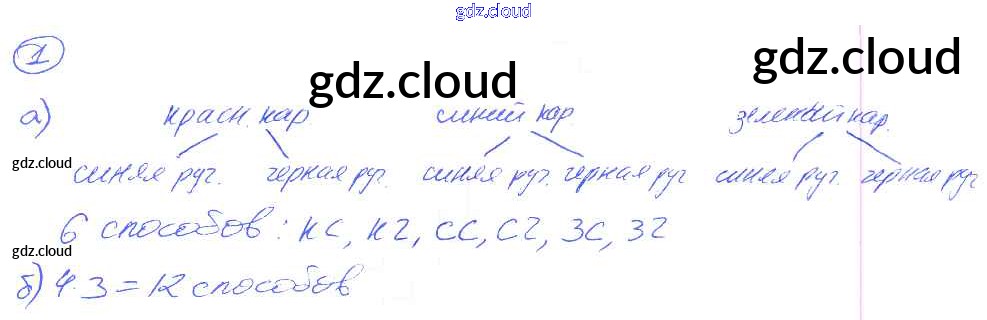 gdz.cloud
1
gdz.cloud gdz.cloud
а) красн. кар синий кар зеленый кар.
gdz.cloud
синяя руч. черная руч. синяя руч. черная руч синяя руч. черная руч
6 способов: кс, кч, сс, сч, зс, зч
gdz.cloud
б) 4·3=12 способов